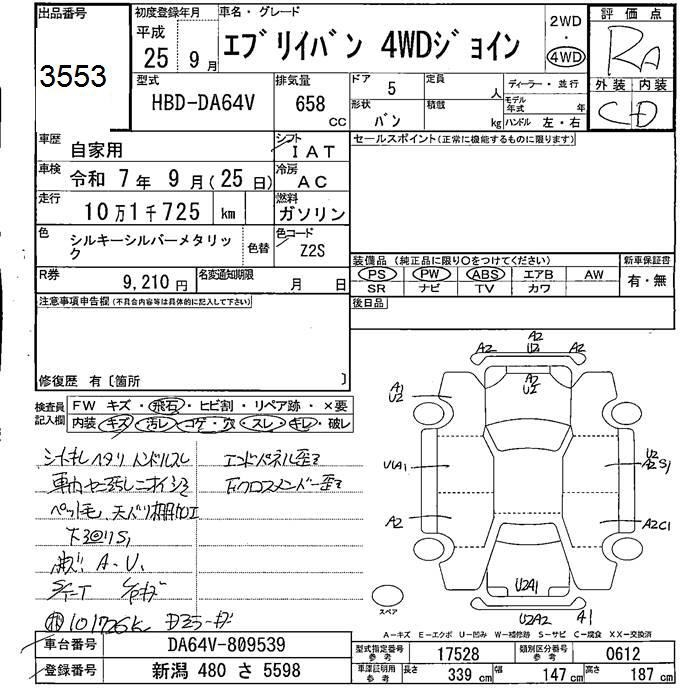 出品番号
3553
初度登録年月
平成
25年 9月
車名・グレード
エブリイバン 4WDジョイン
2WD
・
4WD
評価点
RA
外装 内装
C D
型式
HBD-DA64V
排気量
658
CC
ドア
5
定員
人
ディーラー・並行
形状
バン
積載
kg
モデル年式
年
ハンドル 左・右
車歴
自家用
シフト
IAT
セールスポイント(正常に機能するものに限ります)
車検
令和 7年 9月(25日)
冷房
AC
走行
10万1千725 km
燃料
ガソリン
色
シルキーシルバーメタリック
色替
色コード
Z2S
装備品(純正品に限り○をつけてください)
新車保証書
PS PW ABS エアB AW
有・無
SR ナビ TV カワ
R券
9,210円
名変通知期限
月 日
後日品
注意事項申告欄(不具合内容等は具体的に記入して下さい)
修復歴 有〔箇所 〕
検査員記入欄
FW キズ・飛石・ヒビ割・リペア跡・×要
内装 キズ・汚レ・コゲ・穴・スレ・キレ・破レ
シートキレ ヘタリ ハンドルスレ
エンドパネル歪ミ
ペット毛、天バリ
下3@リS1
波ズ A・U.
101726K
A2
A2 U2 A2
A2
U2
A1
U2
U1A1
U2
A2S1
A2
A2C1
U2A1
U2A2 A1
スペア
A-キズ E-エクボ U-凹み W-補修跡 S-サビ C-腐食 XX-交換済
車台番号
DA64V-809539
型式指定番号
参考
17528
類別区分番号
参考
0612
登録番号
新潟 480 さ 5598
車庫証明用
参考
長さ
339 cm
幅
147 cm
高さ
187 cm